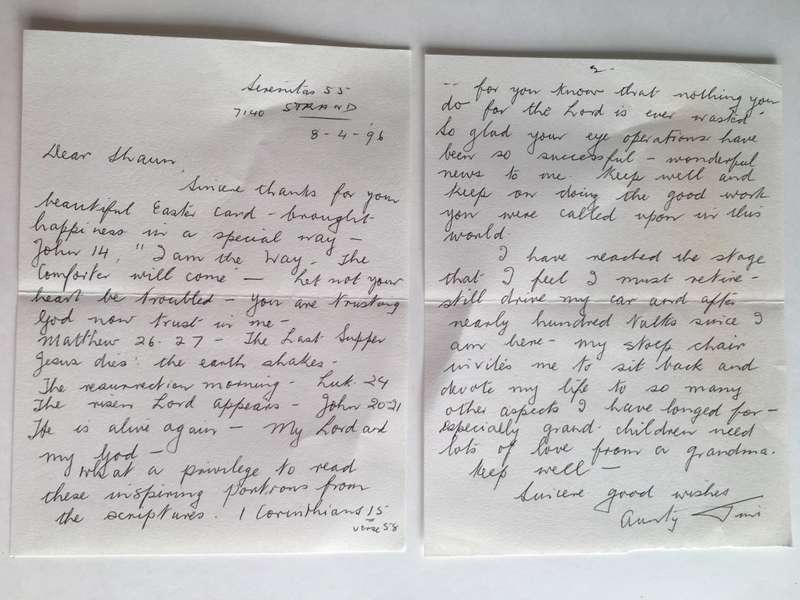 Serenitas 55
7140 STRAND
8-4-96
Dear Shaun,
Sincere thanks for your
beautiful Easter card - brought
happiness in a special way -
John 14, "I am the Way. The
Comforter will come - Let not your
heart be troubled - You are trusting
God now trust in me -
Matthew 26-27 - The Last Supper
Jesus dies: the earth shakes -
The resurrection morning - Luk. 24
The risen Lord appears - John 20-21
He is alive again - My Lord and
my God -
What a privilege to read
these inspiring portions from
the scriptures. 1 Corinthians 15
verse 58
2-
-- for you know that nothing you
do for the Lord is ever wasted -
So glad your eye operations have
been so successful - wonderful
news to me. Keep well and
keep on doing the good work
you were called upon in this
world.
I have reached the stage
that I feel I must retire -
still drive my car and after
nearly hundred talks since I
am here - my stoep chair
invites me to sit back and
devote my life to so many
other aspects I have longed for -
especially grand children need
lots of love from a grandma.
Keep well -
Sincere good wishes
Aunty